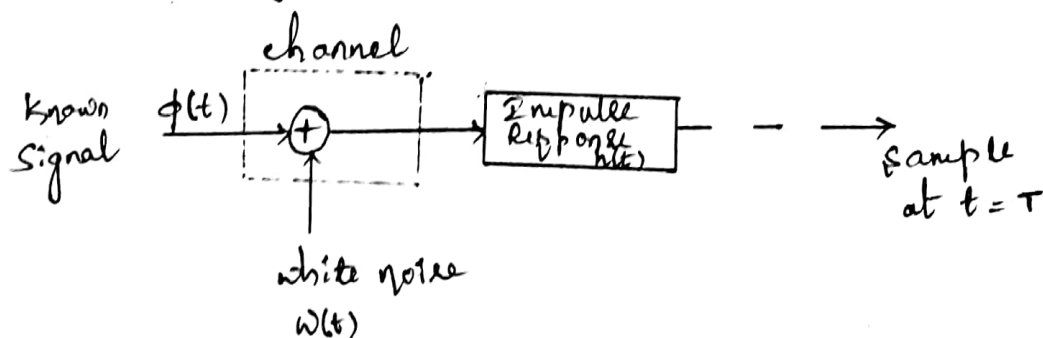 channel
Known
Signal
ϕ(t)
+
Impulse
Response
h(t)
Sample
at t = T
white noise
W(t)